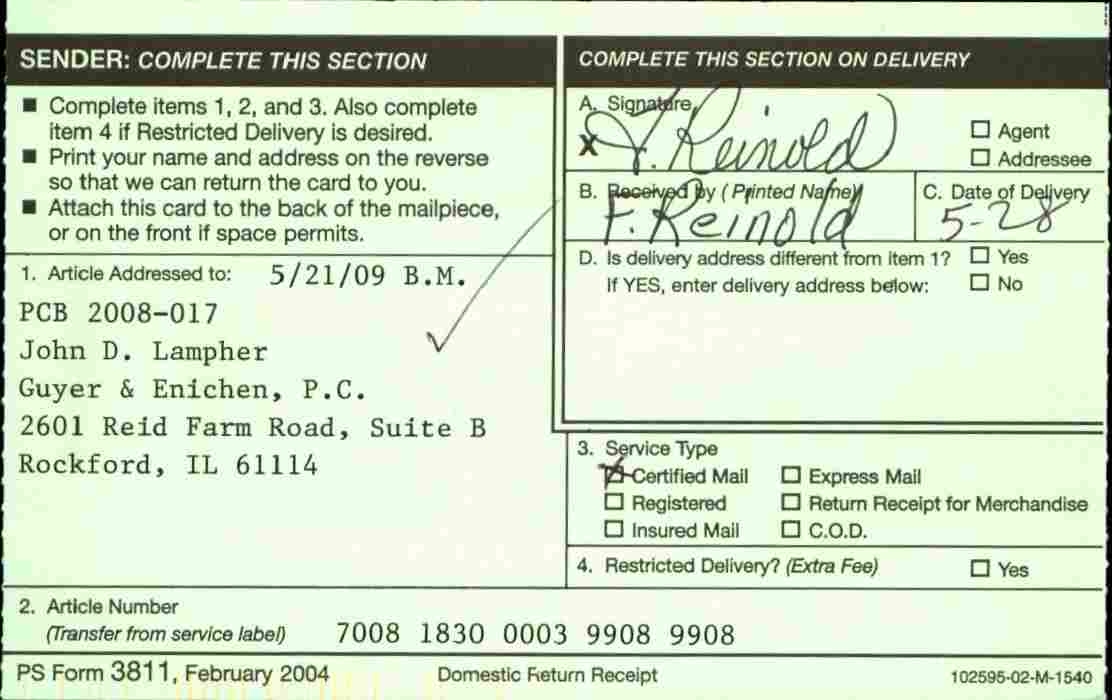 SENDER: COMPLETE THIS SECTION
■ Complete items 1, 2, and 3. Also complete
item 4 if Restricted Delivery is desired.
■ Print your name and address on the reverse
so that we can return the card to you.
■ Attach this card to the back of the mailpiece,
or on the front if space permits.
1. Article Addressed to: 5/21/09 B.M.
PCB 2008-017
John D. Lampher
Guyer & Enichen, P.C.
2601 Reid Farm Road, Suite B
Rockford, IL 61114
COMPLETE THIS SECTION ON DELIVERY
A. Signature
X F. Reinold
☐ Agent
☐ Addressee
B. Received by (Printed Name)
F. Reinold
C. Date of Delivery
5-28
D. Is delivery address different from item 1? ☐ Yes
If YES, enter delivery address below: ☐ No
3. Service Type
☒ Certified Mail ☐ Express Mail
☐ Registered ☐ Return Receipt for Merchandise
☐ Insured Mail ☐ C.O.D.
4. Restricted Delivery? (Extra Fee) ☐ Yes
2. Article Number
(Transfer from service label) 7008 1830 0003 9908 9908
PS Form 3811, February 2004 Domestic Return Receipt 102595-02-M-1540